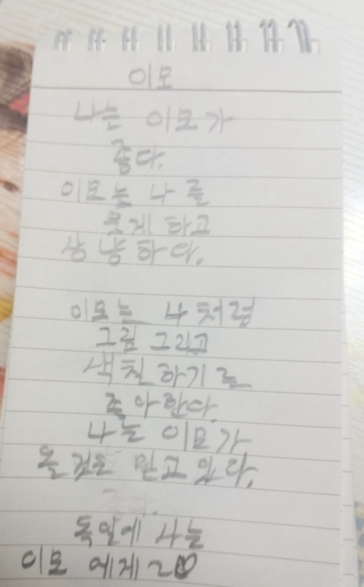 이모
나는 이모가
좋다.
이모는 나를
웃게 하고
상냥하다.
이모는 나처럼
그림 그리고
색칠하기를
좋아한다.
나는 이모가
올 것을 믿고 있다.
독일에 사는
이모에게 20